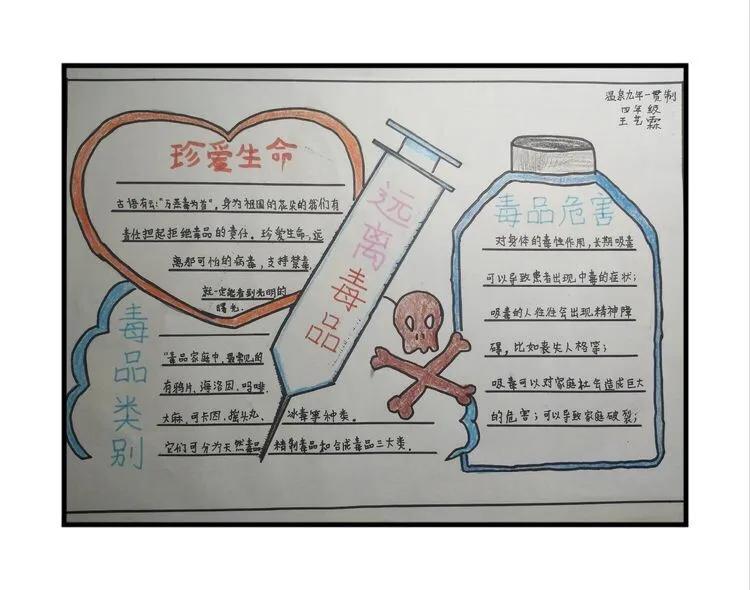 温泉九年一贯制
四年级
王艺霖
珍爱生命
古语有云:"万恶毒为首"，身为祖国的花朵的我们有
责任担起拒绝毒品的责任。珍爱生命，远
离那可怕的病毒，支持禁毒，
就一定能看到光明的
曙光。
远离毒品
毒品类别
"毒品家庭中，最常见的
有鸦片、海洛因、吗啡、
大麻、可卡因、摇头丸、冰毒等种类。
它们可分为天然毒品、精制毒品和合成毒品三大类。
毒品危害
对身体的毒性作用，长期吸毒
可以导致患者出现中毒的症状；
吸毒的人往往会出现精神障
碍，比如丧失人格等；
吸毒可以对家庭社会造成巨大
的危害；可以导致家庭破裂；